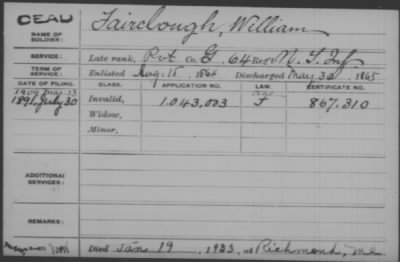 DEAD
NAME OF SOLDIER: Fairclough, William
SERVICE: Late rank, Pvt Co. G, 64 Reg't N. Y. Inf
TERM OF SERVICE: Enlisted Aug. 15, 1864 Discharged May 30, 1865
DATE OF FILING. CLASS. APPLICATION NO. LAW. CERTIFICATE NO.
1904 Mar. 13 Age
1891, July 30 Invalid, 1.043.003 F 867.310
Widow,
Minor,
ADDITIONAL SERVICES:
REMARKS:
Died Jan 19, 1933, at Richmond, Me